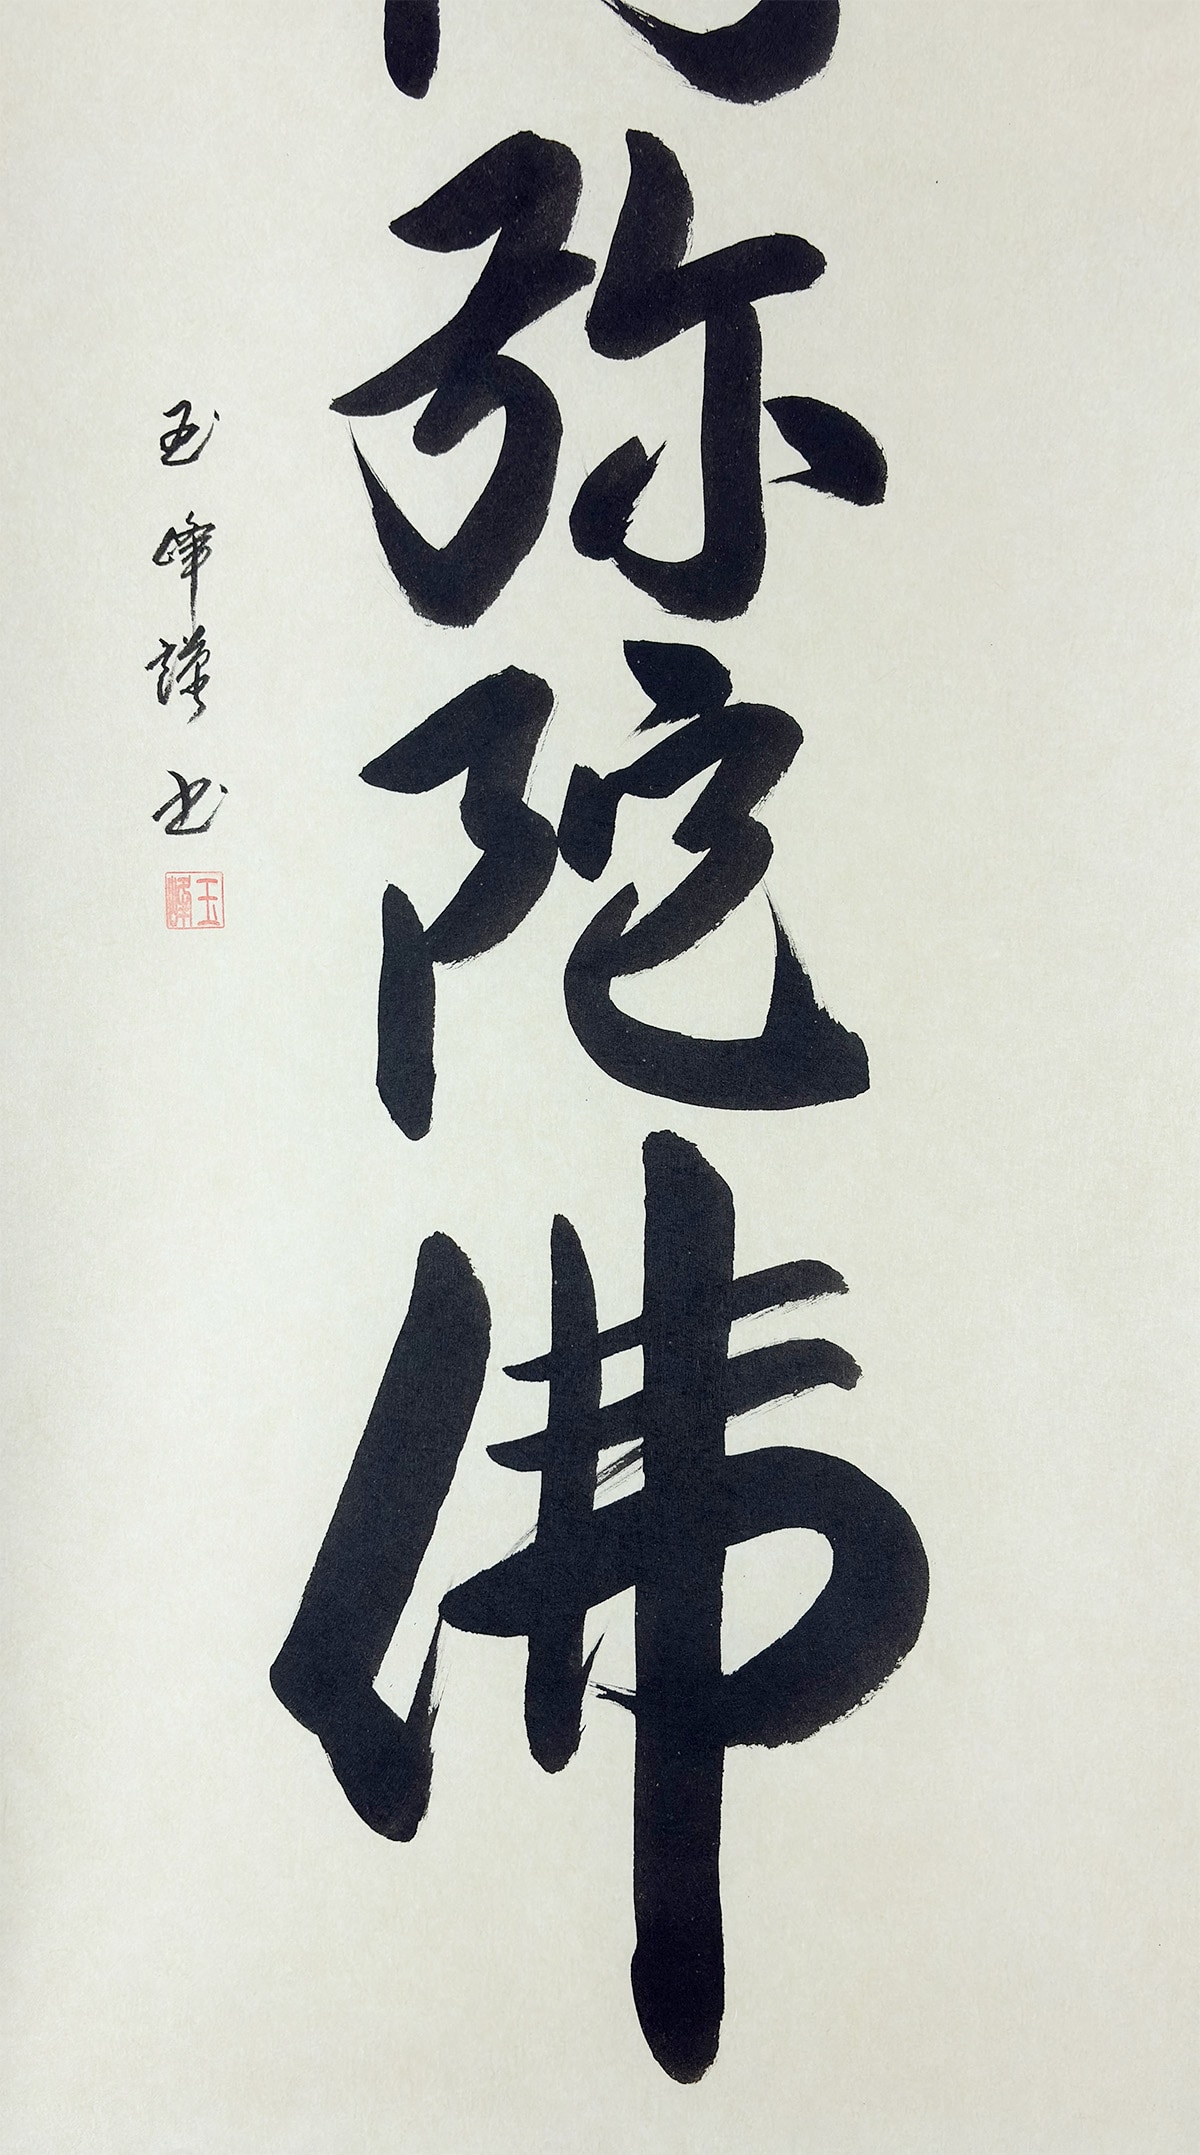 弥陀佛
玉峰謹书
玉峰